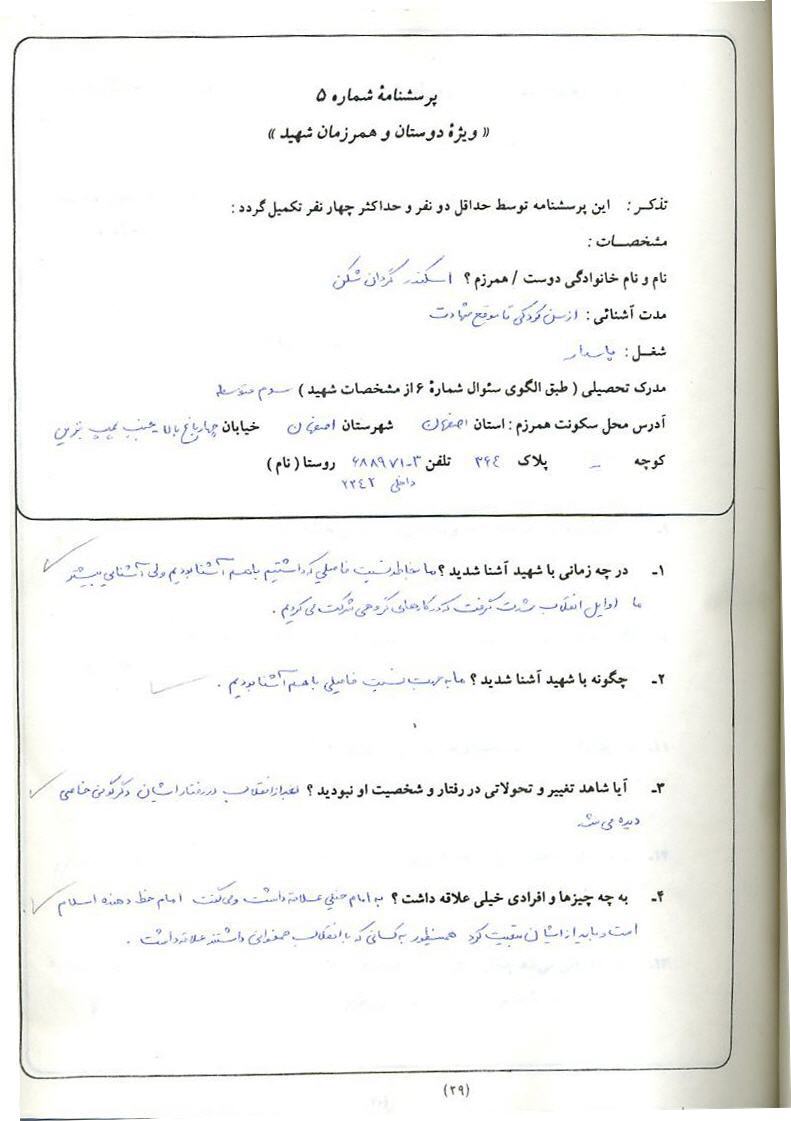 پرسشنامهٔ شماره ۵
« ویژهٔ دوستان و همرزمان شهید »
تذکـر : این پرسشنامه توسط حداقل دو نفر و حداکثر چهار نفر تکمیل گردد :
مشخصـات :
نام و نام خانوادگی دوست / همرزم ؟ اسکندر گردان شکن
مدت آشنائی : از سن کودکی تا موقع شهادت
شغـل : پاسدار
مدرک تحصیلی ( طبق الگوی سئوال شمارهٔ ۶ از مشخصات شهید ) سوم متوسطه
آدرس محل سکونت همرزم : استان اصفهان شهرستان اصفهان خیابان چهارباغ بالا جنب پمپ بنزین
کوچه – پلاک ۳۶۴ تلفن ۳-۶۸۸۹۷۱ روستا ( نام )
داخلی ۲۲۴۲
۱ـ در چه زمانی با شهید آشنا شدید ؟ ما بخاطر نسبت فامیلی که داشتیم با هم آشنا بودیم ولی آشنایی بیشتر
ما اوایل انقلاب شدت گرفت که در کارهای گروهی شرکت می کردیم .
۲ـ چگونه با شهید آشنا شدید ؟ ما به جهت نسبت فامیلی با هم آشنا بودیم .
۳ـ آیا شاهد تغییر و تحولاتی در رفتار و شخصیت او نبودید ؟ بعد از انقلاب در رفتار ایشان دگرگونی خاصی
دیده می شد
۴ـ به چه چیزها و افرادی خیلی علاقه داشت ؟ به امام خیلی علاقه داشت و می گفت امام خط دهنده اسلام
است و باید از ایشان تبعیت کرد همینطور به کسانی که با انقلاب همخوانی داشتند علاقه داشت .
(۲۹)